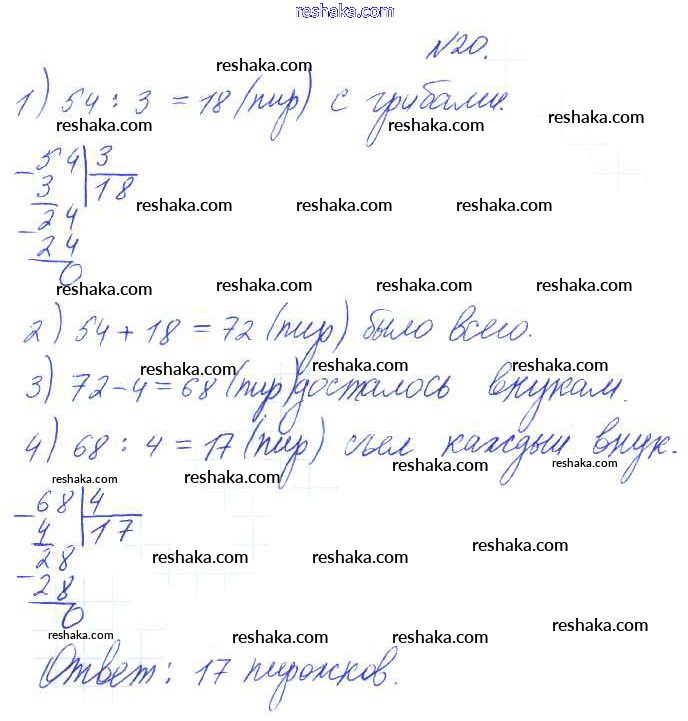 reshaka.com
№20.
reshaka.com
1) 54 : 3 = 18 (пир) с грибами.
reshaka.com reshaka.com reshaka.com
54 3
3 18
reshaka.com reshaka.com reshaka.com
24
24
0
reshaka.com reshaka.com reshaka.com
2) 54 + 18 = 72 (пир) было всего.
reshaka.com reshaka.com reshaka.com
3) 72 - 4 = 68 (пир) досталось внукам.
reshaka.com reshaka.com
4) 68 : 4 = 17 (пир) съел каждый внук.
reshaka.com reshaka.com reshaka.com reshaka.com
68 4
4 17
28
reshaka.com reshaka.com reshaka.com
28
0
reshaka.com reshaka.com reshaka.com reshaka.com
Ответ: 17 пирожков.
reshaka.com reshaka.com reshaka.com